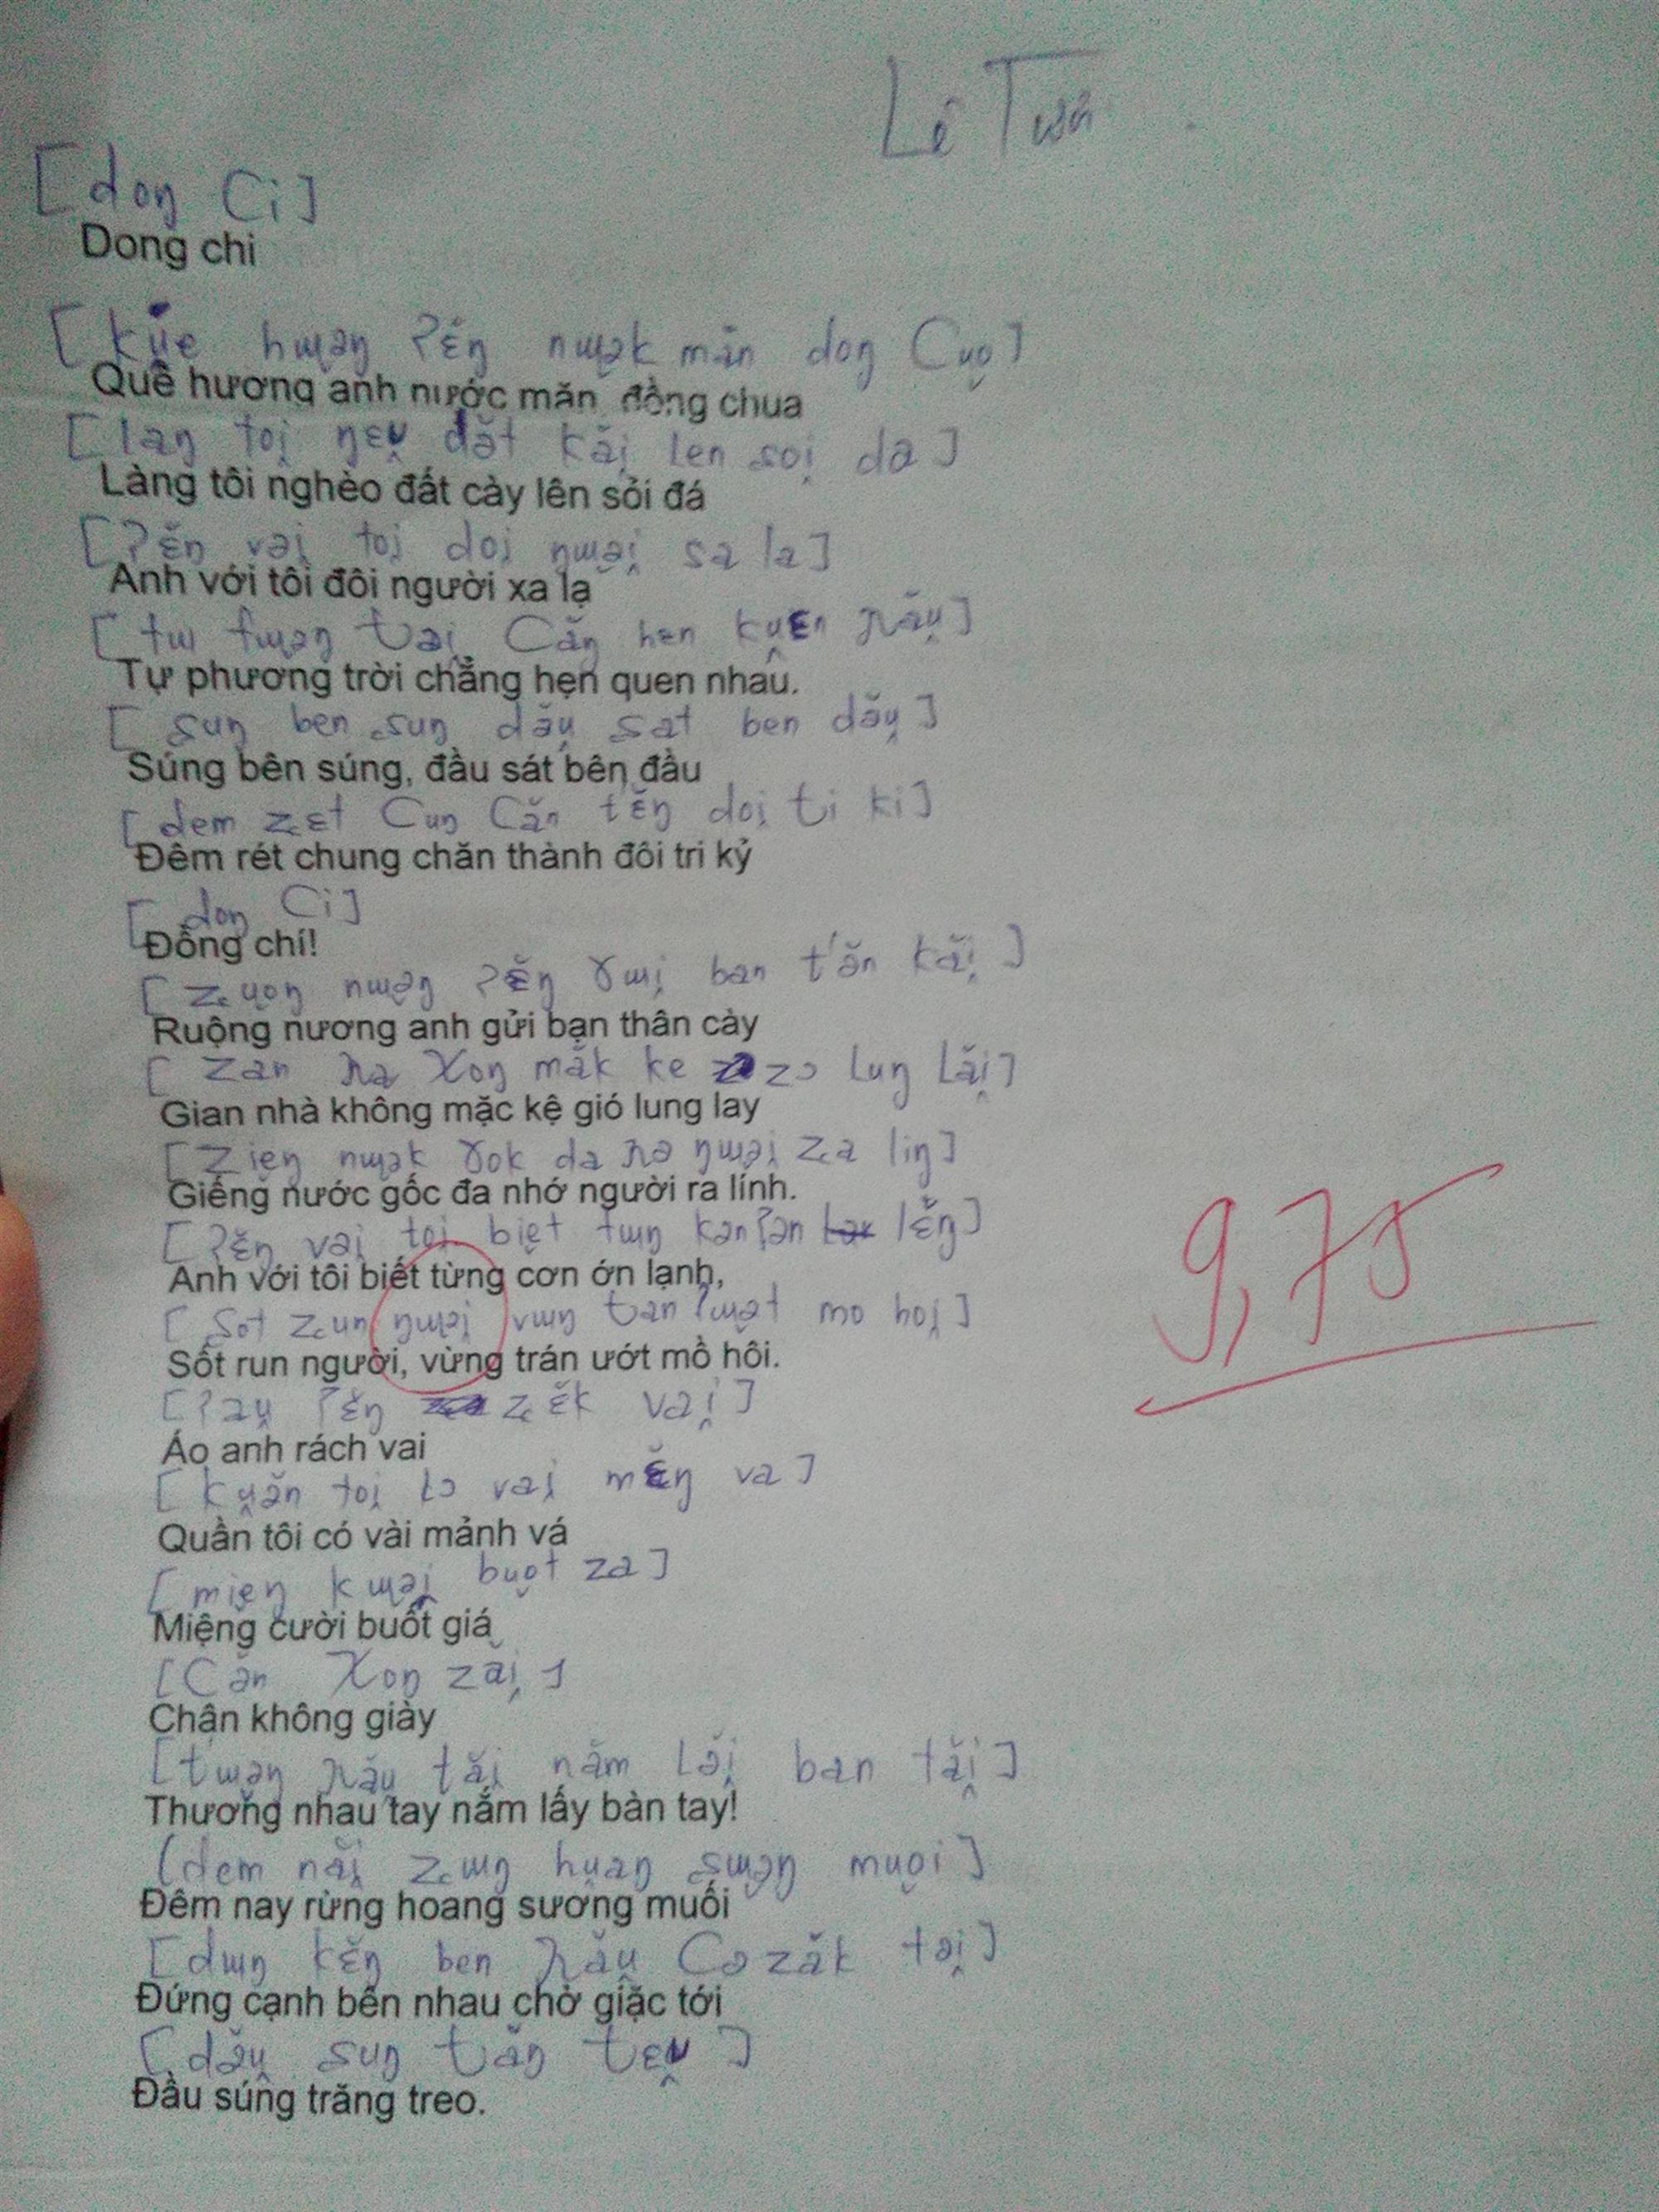 Lê Tuấn
[doŋ ci]
Dong chi
[kṷe hɯ̯əŋ ʔɛ̆ŋ nɯ̯ək măn doŋ cuo̯]
Quê hương anh nước mặn đồng chua
[laŋ toi̯ ŋɛṷ dɤ̆t kăi̯ len ʂoi̯ da]
Làng tôi nghèo đất cày lên sỏi đá
[ʔɛ̆ŋ vəi̯ toi̯ doi̯ ŋɯəi̯ sa la]
Anh với tôi đôi người xa lạ
[tɯ fɯəŋ ʈəi̯ căŋ hɛn kṷɛn ɲăṷ]
Tự phương trời chẳng hẹn quen nhau.
[ʂuŋ ben ʂuŋ də̆ṷ ʂat ben də̆ṷ]
Súng bên súng, đầu sát bên đầu
[dem ʐɛt cuŋ căn tɛ̆ŋ doi̯ ʈi ki]
Đêm rét chung chăn thành đôi tri kỷ
[doŋ ci]
Đồng chí!
[ʐuoŋ nɯəŋ ʔɛ̆ŋ ɣɯi̯ ban t'ə̆n kăi̯]
Ruộng nương anh gửi bạn thân cày
[zan ɲa χoŋ măk ke zɔ luŋ lăi̯]
Gian nhà không mặc kệ gió lung lay
[zieŋ nɯək ɣok da ɲə ŋɯəi̯ ʐa liŋ]
Giếng nước gốc đa nhớ người ra lính.
[ʔɛ̆ŋ vəi̯ toi̯ biet tɯŋ kən ʔən lɛ̆ŋ]
Anh với tôi biết từng cơn ớn lạnh,
[ʂot ʐun ŋɯəi̯ vɯŋ ʈan ʔɯət mo hoi̯]
Sốt run người, vừng trán ướt mồ hôi.
[ʔaṷ ʔɛ̆ŋ ʐɛ̆k vai̯]
Áo anh rách vai
[kṷə̆n toi̯ kɔ vai̯ mɛ̆ŋ va]
Quần tôi có vài mảnh vá
[mieŋ kɯəi̯ buo̯t za]
Miệng cười buốt giá
[cə̆n χoŋ zăi̯]
Chân không giày
[tɯəŋ ɲăṷ tăi̯ năm lə̆i̯ ban tăi̯]
Thương nhau tay nắm lấy bàn tay!
[dem năi̯ ʐɯŋ hṷaŋ ʂɯəŋ muo̯i]
Đêm nay rừng hoang sương muối
[dɯŋ kɛ̆ŋ ben ɲăṷ cə zăk təi̯]
Đứng cạnh bên nhau chờ giặc tới
[də̆ṷ ʂuŋ ʈăŋ ʈɛṷ]
Đầu súng trăng treo.
9,75